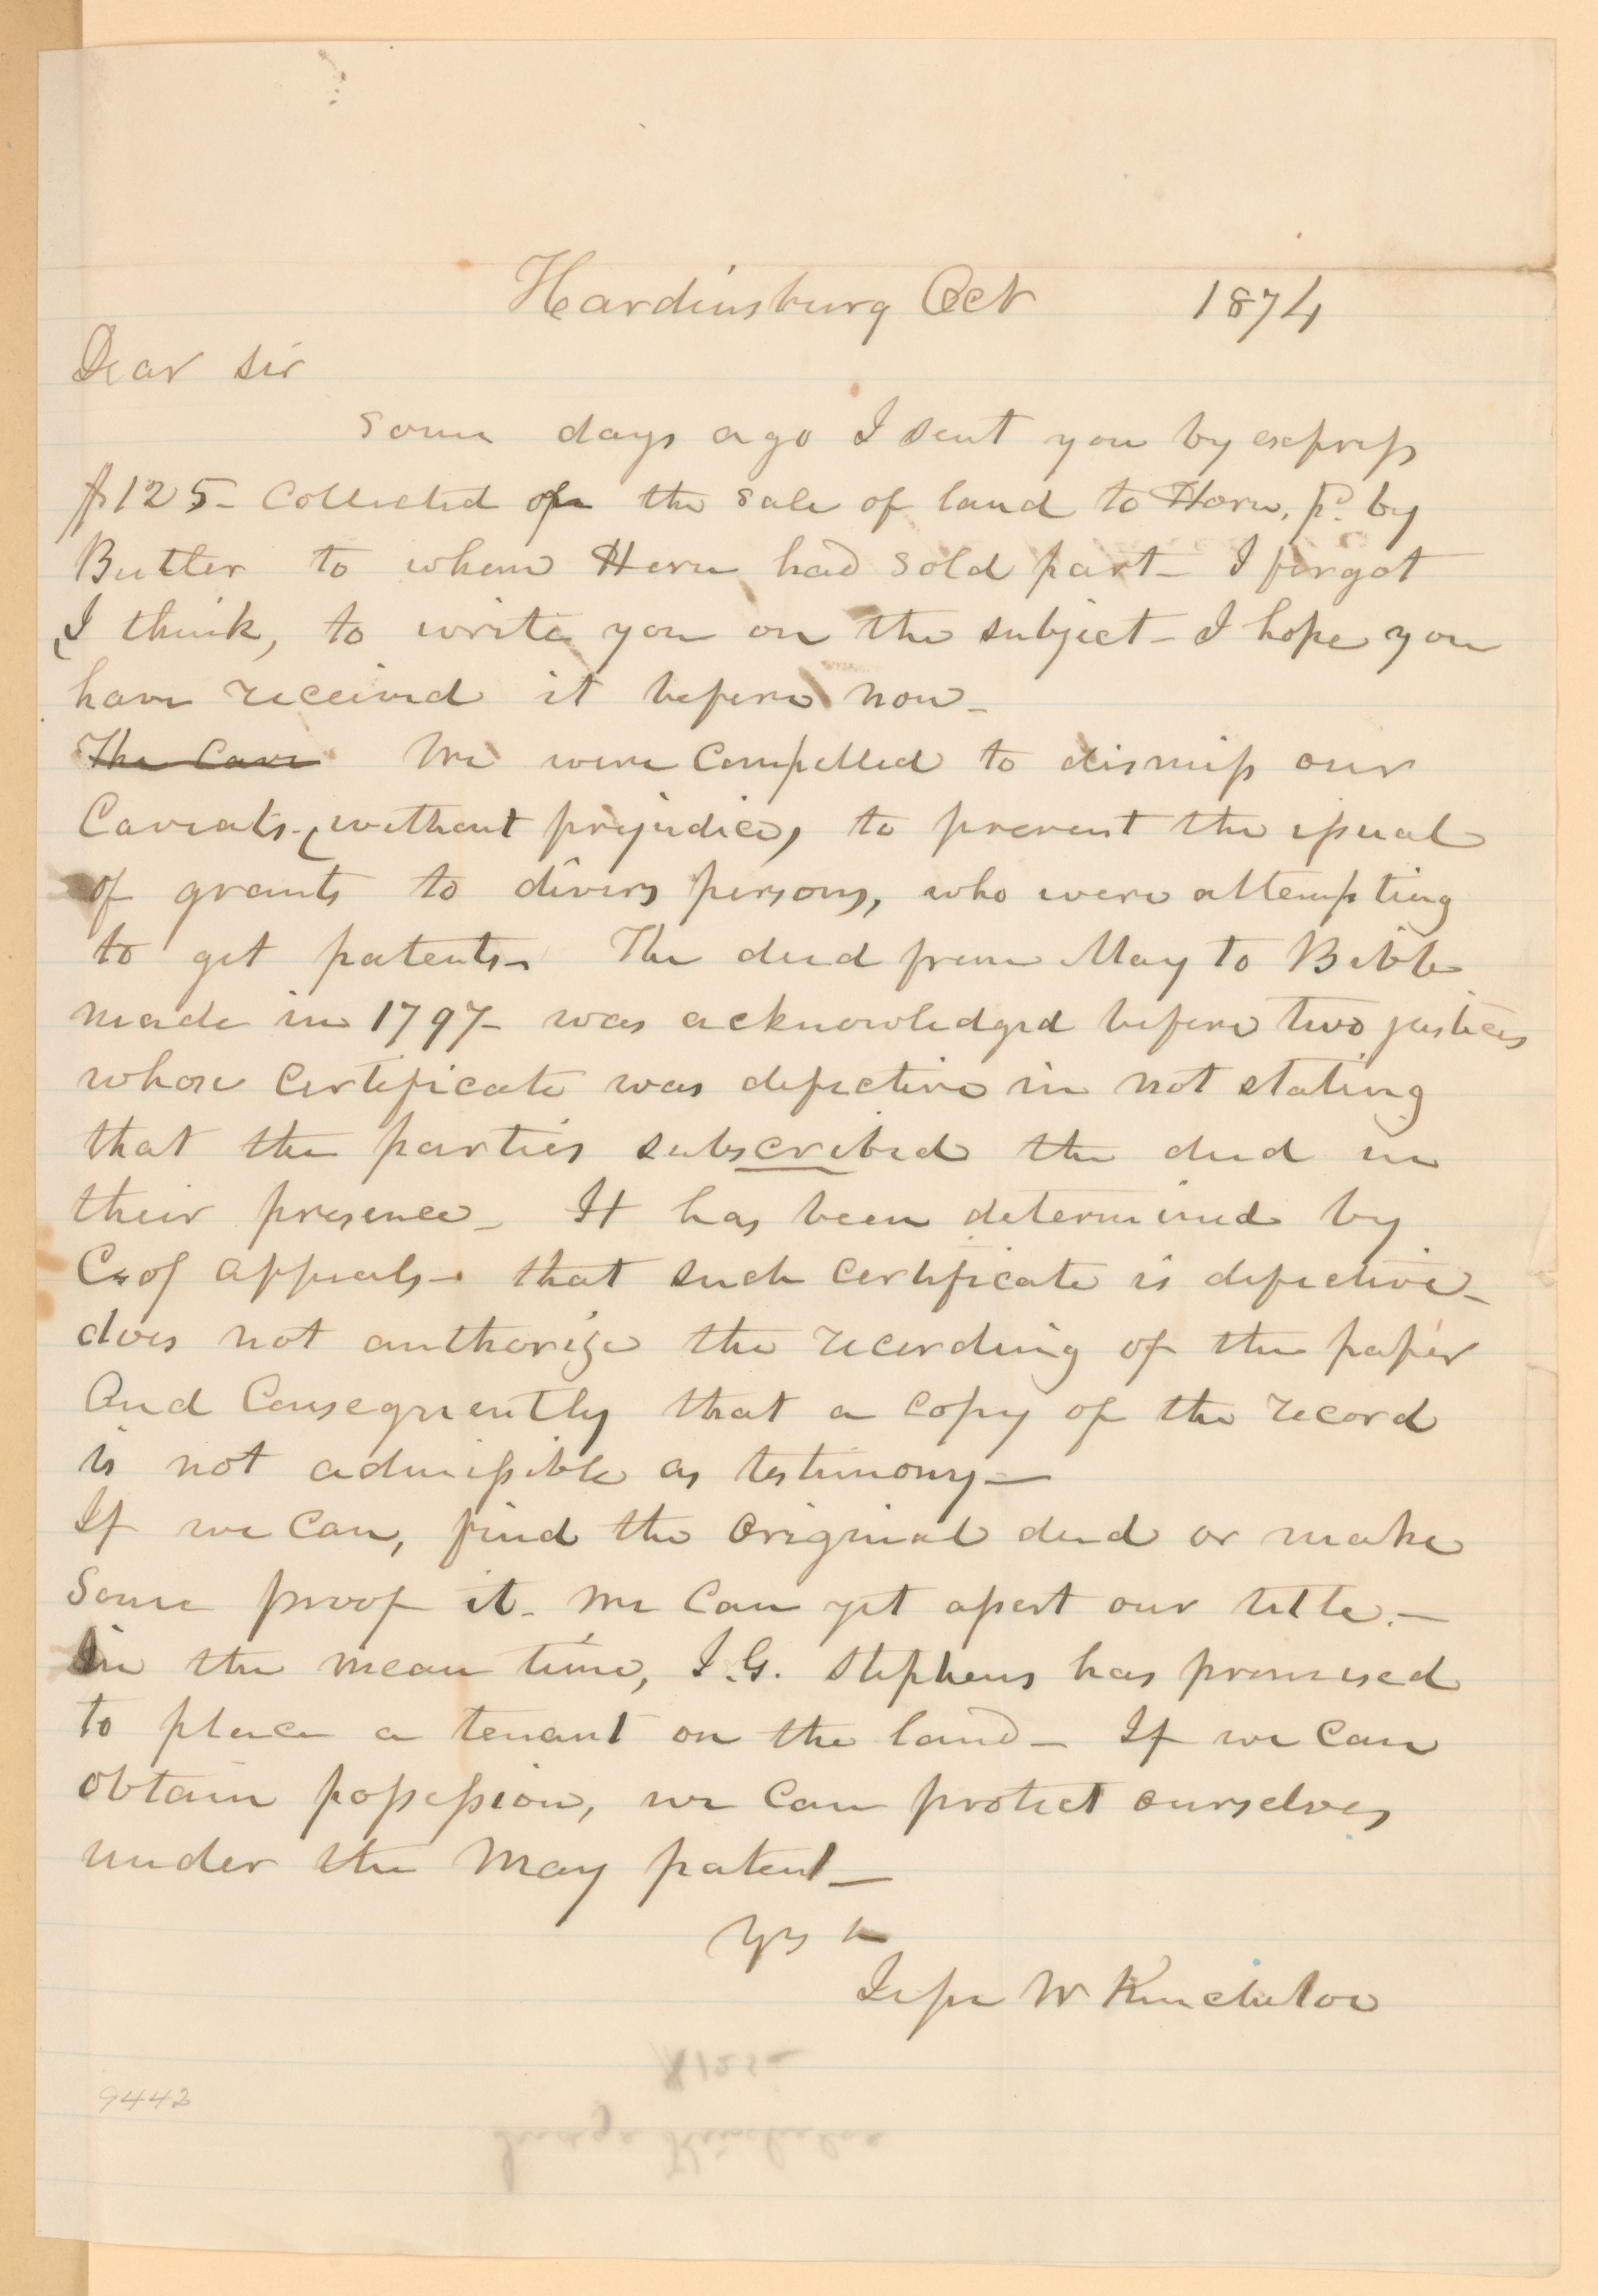 Hardinsburg Oct 1874
Dear Sir
Some days ago I sent you by express
$125– Collected of the sale of land to Horn, pd. by
Butler to whom Horn had sold part– I forgot
I think, to write you on the subject– I hope you
have received it before now–
The Cave We were Compelled to dismiss our
Caveats– (without prejudice, to prevent the issual
of grants to divers persons, who were attempting
to get patents– The deed from May to Bibb
made in 1797– was acknowledged before two justices
whose Certificate was defective in not stating
that the parties subscribed the deed in
their presence– It has been determined by
C. of Appeals– that such Certificate is defective–
does not authorize the recording of the paper
And Consequently that a Copy of the record
is not admissible as testimony–
If we Can, find the Original deed or make
Some proof it– we Can yet assert our title.–
In the mean time, J. G. Stephens has promised
to place a tenant on the land– If we Can
obtain possession, we Can protect ourselves
under the May patent–
Yrs
Jesse W Kincheloe
$125–
Judge Kincheloe
9442